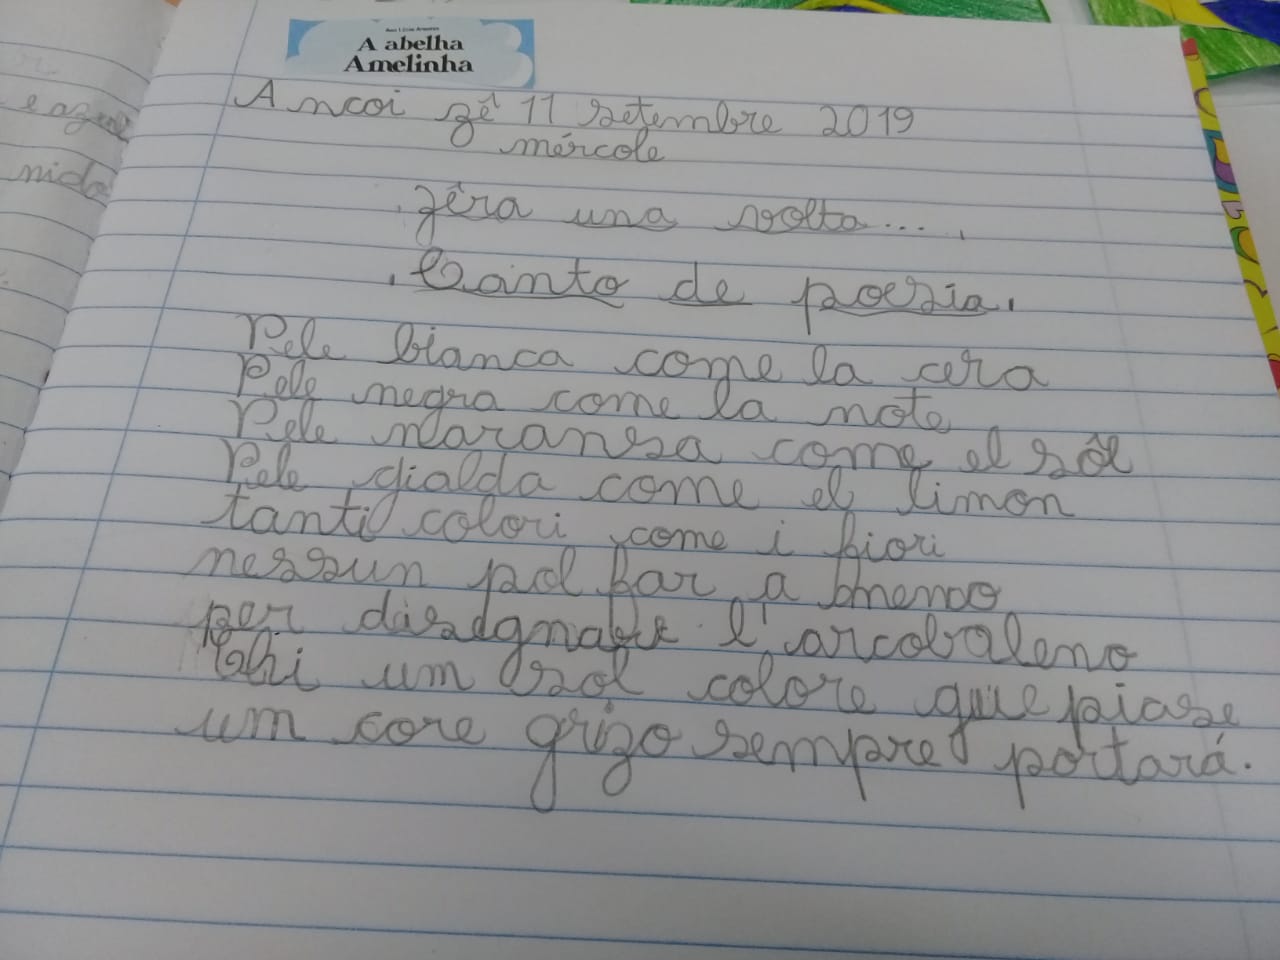 A abelha
Amelinha
Ancoi zê 11 setembre 2019
mércole
Zêra una volta...
Canto de poesia.
Pele bianca come la cera
Pele negra come la note
Pele naransa come el sôl
Pele gialda come el limon
tanti colori come i fiori
nessun pol far a meno
per disegnare l'arcobaleno
Chi um sol colore que piase
um core grizo sempre portará.
e azul
nido